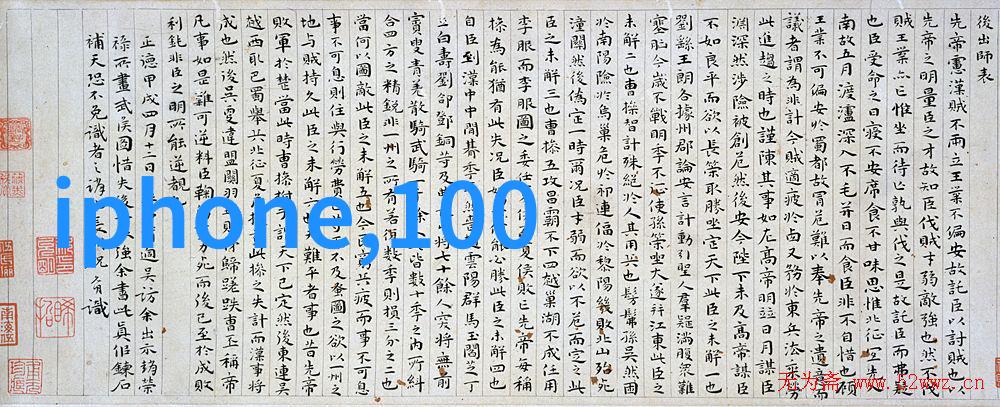 後出師表
先帝慮漢賊不兩立王業不偏安故託臣以討賊也以
先帝之明量臣之才故知臣伐賊才弱敵強也然不伐
賊王業亦亡惟坐而待亡孰與伐之是故託臣而弗疑
也臣受命之日寢不安席食不甘味思惟北征宜先入
南故五月渡瀘深入不毛并日而食臣非不自惜也顧
王業不可偏安於蜀都故冒危難以奉先帝之遺意而
議者謂為非計今賊適疲於西又務於東兵法乘勞
此進趨之時也謹陳其事如左高帝明並日月謀臣
淵深然涉險被創危然後安今陛下未及高帝謀臣
不如良平而欲以長策取勝坐定天下此臣之未解一也
劉繇王朗各據州郡論安言計動引聖人羣疑滿腹衆難
塞胸今歲不戰明年不征使孫策坐大遂并江東此臣之
未解二也曹操智計殊絕於人其用兵也髣髴孫吳然困
於南陽險於烏巢危於祁連偪於黎陽幾敗北山殆死
潼關然後偽定一時爾況臣才弱而欲以不危而定之此
臣之未解三也曹操五攻昌霸不下四越巢湖不成任用
李服而李服圖之委任夏侯敗亡先帝每稱
操為能猶有此失況臣能必勝此臣之未解四也
自臣到漢中中間朞年然喪雲陽群馬玉閻芝丁
立白壽劉郃鄧銅等及將七十餘人突將無前
賨叟青羌散騎武騎一千餘人皆數十年之內所糾
合四方之精銳非一州之所有若復數年則損三分之二也
當何以圖敵此臣之未解五也今民窮兵疲而事不可息
事不可息則住與行勞費不及蚤圖之欲以一州之
地与賊持久此臣之未解六也難平者事也昔先帝
敗軍於楚當此時曹操拊手謂天下已定然後東連吳
越西取巴蜀舉兵北征夏此操之失計而漢事將
成也然後吳更違盟關羽毀敗秭歸蹉跌曹丕稱帝
凡事如是難可逆料臣鞠躬盡力死而後已至於成敗
利鈍非臣之明所能逆覩
正德甲戌四月十二日過吳訪余出示趙榮
祿所畫武侯圖惜失後強余書此真俗鍊石
補天恐不免識者之誚自識
iphone,100
无为斋 www.52wwz.cn